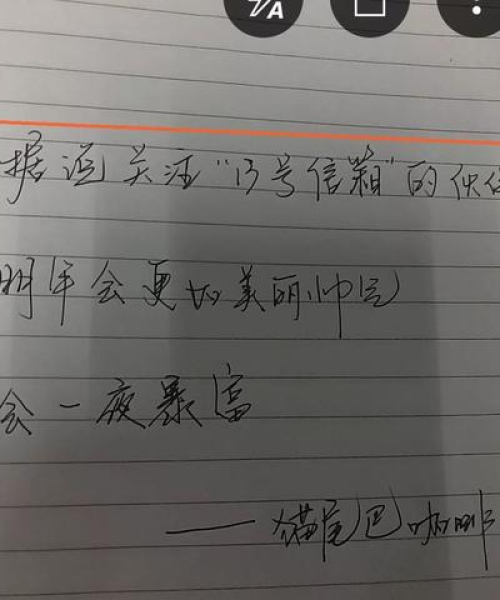 据说关注“13号信箱”的伙伴
明年会更加美丽帅气
会一夜暴富
——猫尾巴咖啡